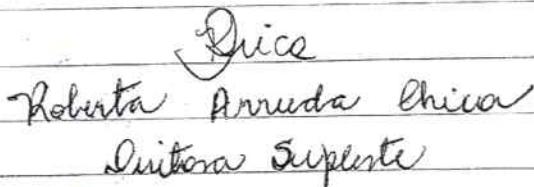 Roberta Arruda Chica
Diretora Suplente